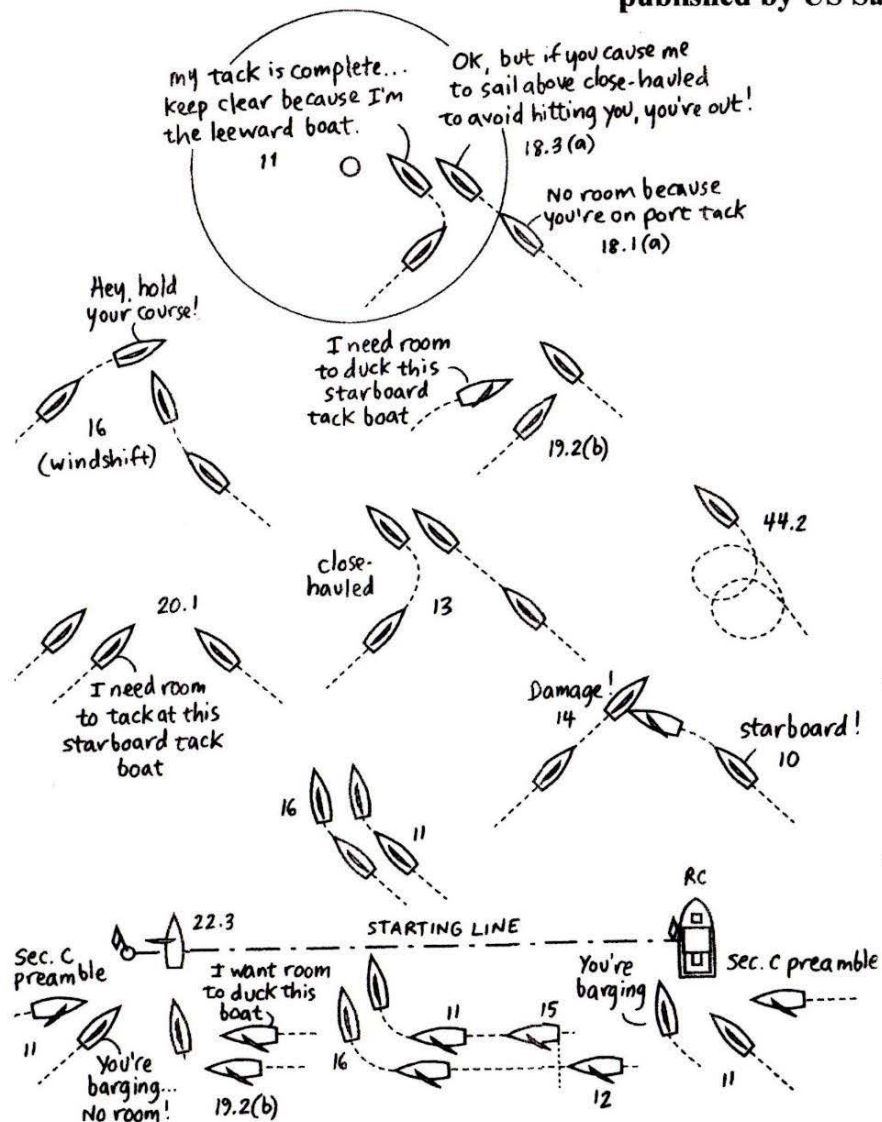 published by US Sa
my tack is complete...
keep clear because I'm
the leeward boat.
11
OK, but if you cause me
to sail above close-hauled
to avoid hitting you, you're out!
18.3(a)
No room because
you're on port tack
18.1(a)
Hey, hold
your course!
16
(windshift)
I need room
to duck this
starboard
tack boat
19.2(b)
44.2
close-
hauled
13
20.1
I need room
to tack at this
starboard tack
boat
Damage!
14
starboard!
10
16
11
RC
22.3
STARTING LINE
Sec. C
preamble
11
You're
barging...
No room!
I want room
to duck this
boat
19.2(b)
16
11
15
12
You're
barging
Sec. C preamble
11